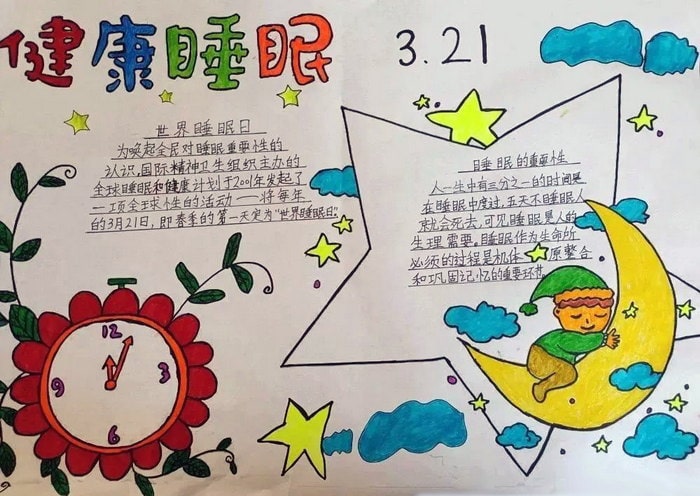 健康睡眠
3.21
世界睡眠日
为唤起全民对睡眠重要性的
认识,国际精神卫生组织主办的
全球睡眠和健康计划于2001年发起了
一项全球性的活动——将每年
的3月21日,即春季的第一天定为“世界睡眠日”
睡眠的重要性
人一生中有三分之一的时间是
在睡眠中度过,五天不睡眠人
就会死去,可见睡眠是人的
生理需要,睡眠作为生命所
必须的过程是机体 原整合
和巩固记忆的重要环节
12
3
6
9